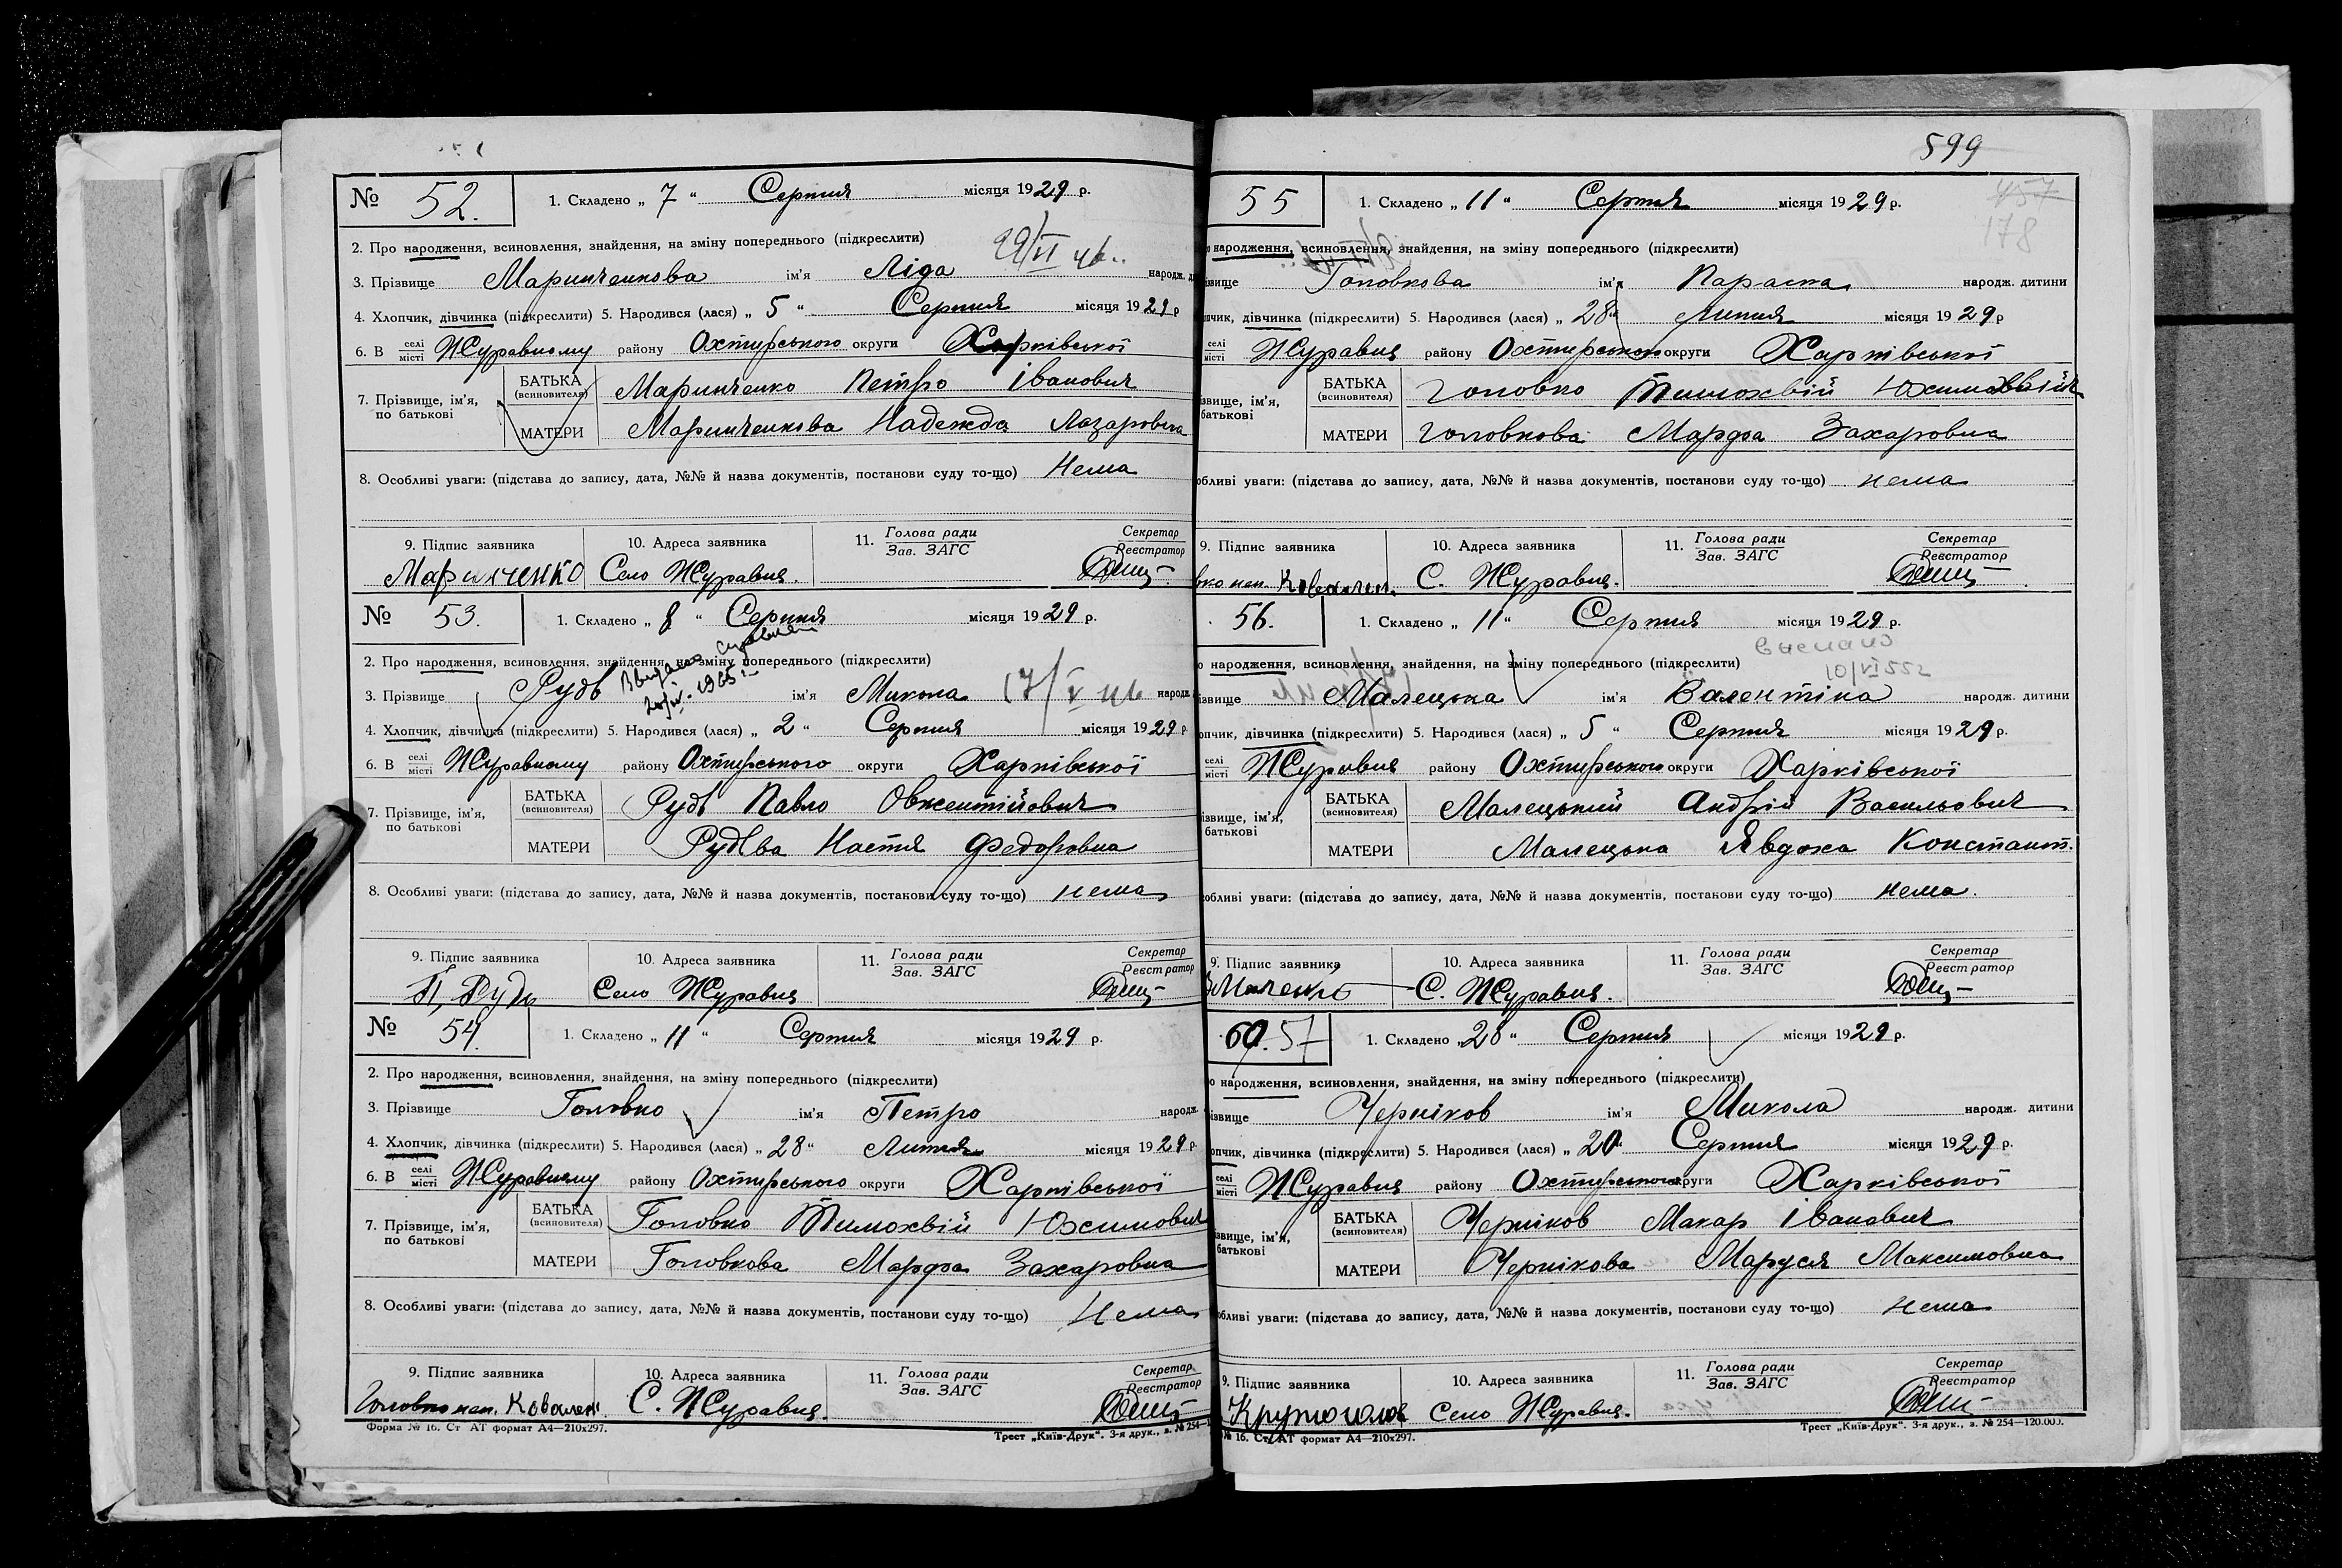 № 52. 1. Складено „ 7 “ Серпня місяця 1929 р.
2. Про народження, всиновлення, знайдення, на зміну попереднього (підкреслити) 29/VI 46..
3. Прізвище Маринченкова ім’я Ліда народж.
4. Хлопчик, дівчинка (підкреслити) 5. Народився (лася) „ 5 “ Серпня місяця 1929 р
6. В селі місті Журавному району Охтирського округи Харківської
7. Прізвище, ім’я, по батькові
БАТЬКА (всиновителя) Маринченко Петро Іванович
МАТЕРИ Маринченкова Надежда Лазаровна
8. Особливі уваги: (підстава до запису, дата, №№ й назва документів, постанови суду то-що) Нема
9. Підпис заявника 10. Адреса заявника 11. Голова ради Зав. ЗАГС Секретар Реєстратор
Маринченко Село Журавне.
№ 53. 1. Складено „ 8 “ Серпня місяця 1929 р.
2. Про народження, всиновлення, знайдення, на зміну попереднього (підкреслити)
3. Прізвище Рудь ім’я Микола 17/V 46 народж.
4. Хлопчик, дівчинка (підкреслити) 5. Народився (лася) „ 2 “ Серпня місяця 1929 р
6. В селі місті Журавному району Охтирського округи Харківської
7. Прізвище, ім’я, по батькові
БАТЬКА (всиновителя) Рудь Павло Овксентійович
МАТЕРИ Рудьва Настя Федоровна
8. Особливі уваги: (підстава до запису, дата, №№ й назва документів, постанови суду то-що) нема
9. Підпис заявника 10. Адреса заявника 11. Голова ради Зав. ЗАГС Секретар Реєстратор
П, Рудь Село Журавне
№ 54. 1. Складено „ 11 “ Серпня місяця 1929 р.
2. Про народження, всиновлення, знайдення, на зміну попереднього (підкреслити)
3. Прізвище Головко ім’я Петро народж.
4. Хлопчик, дівчинка (підкреслити) 5. Народився (лася) „ 28 “ Липня місяця 1929 р
6. В селі місті Журавному району Охтирського округи Харківської
7. Прізвище, ім’я, по батькові
БАТЬКА (всиновителя) Головко Тимохвій Юхимович
МАТЕРИ Головкова Марфа Захаровна
8. Особливі уваги: (підстава до запису, дата, №№ й назва документів, постанови суду то-що) Нема
9. Підпис заявника 10. Адреса заявника 11. Голова ради Зав. ЗАГС Секретар Реєстратор
Головко неп. Ковален. С. Журавне.
Форма № 16. Ст АТ формат А4—210х297. Трест „Київ-Друк“. 3-я друк., з. № 254—1
599
457
178
55 1. Складено „ 11 “ Серпня місяця 1929 р.
народження, всиновлення, знайдення, на зміну попереднього (підкреслити)
ізвище Головкова ім’я Параска народж. дитини
пчик, дівчинка (підкреслити) 5. Народився (лася) „ 28 “ Липня місяця 1929 р
селі місті Журавне району Охтирського округи Харківської
ізвище, ім’я, батькові
БАТЬКА (всиновителя) Головко Тимохвій
МАТЕРИ Головкова Марфа Захаровна
обливі уваги: (підстава до запису, дата, №№ й назва документів, постанови суду то-що) нема
9. Підпис заявника 10. Адреса заявника 11. Голова ради Зав. ЗАГС Секретар Реєстратор
вко неп. Ковален. С. Журавне.
56. 1. Складено „ 11 “ Серпня місяця 1929 р.
о народження, всиновлення, знайдення, на зміну попереднього (підкреслити) 10/VI 55 г
ізвище Малецька ім’я Валентіна народж. дитини
пчик, дівчинка (підкреслити) 5. Народився (лася) „ 5 “ Серпня місяця 1929 р.
селі місті Журавне району Охтирського округи Харківської
ізвище, ім’я, батькові
БАТЬКА (всиновителя) Малецький Андрій Васильович
МАТЕРИ Малецька Явдоха Констант.
обливі уваги: (підстава до запису, дата, №№ й назва документів, постанови суду то-що) нема.
9. Підпис заявника 10. Адреса заявника 11. Голова ради Зав. ЗАГС Секретар Реєстратор
С. Журавне.
60. 57 1. Складено „ 28 “ Серпня місяця 1929 р.
о народження, всиновлення, знайдення, на зміну попереднього (підкреслити)
ізвище Черніков ім’я Микола народж. дитини
пчик, дівчинка (підкреслити) 5. Народився (лася) „ 20 “ Серпня місяця 1929 р.
селі місті Журавне району Охтирського округи Харківської
ізвище, ім’я, батькові
БАТЬКА (всиновителя) Черніков Макар Іванович
МАТЕРИ Чернікова Маруся Максимовна
обливі уваги: (підстава до запису, дата, №№ й назва документів, постанови суду то-що) нема
9. Підпис заявника 10. Адреса заявника 11. Голова ради Зав. ЗАГС Секретар Реєстратор
Круточолов Село Журавне.
№ 16. Ст. АТ формат А4—210х297. Трест „Київ-Друк“. 3-я друк., з. № 254—120.000.